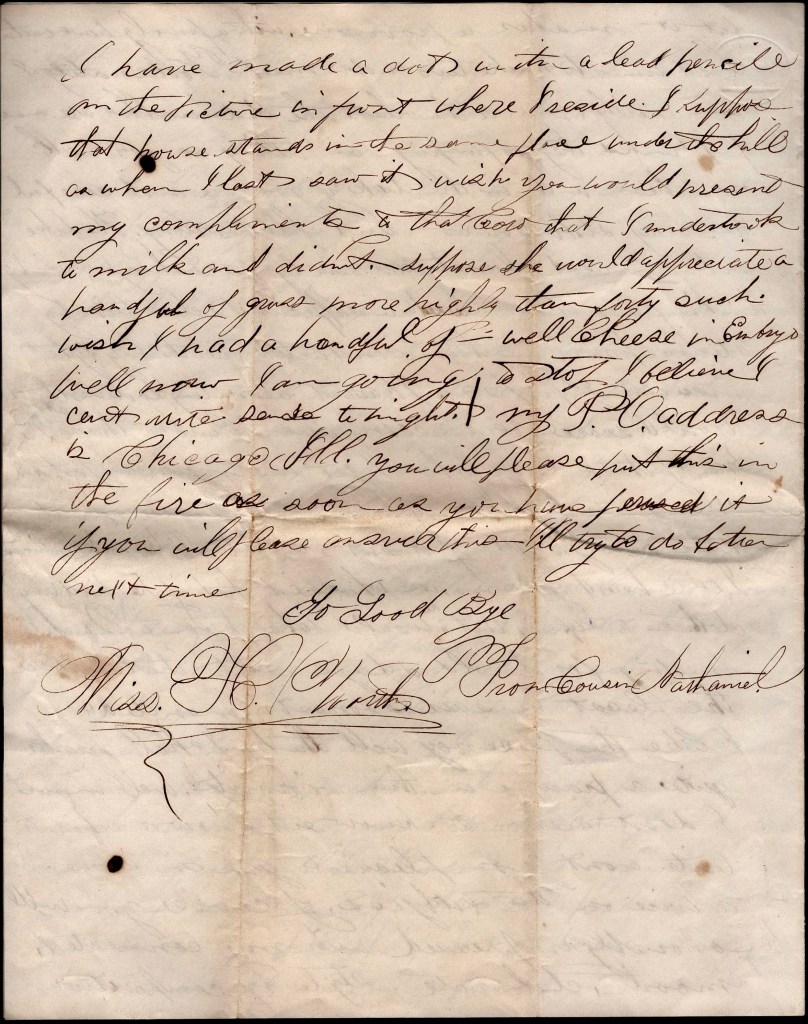 I have made a dot with a lead pencile
on the Picture in front where I reside. I suppose
that house stands in the same place under the hill
as when I last saw it wish you would present
my compliments to that Cow that I undertook
to milk and didnt. suppose she would appreciate a
handful of grass more highly than forty such.
wish I had a handful of = well Cheese in Embryo
Well now I am going to stop I believe I
cant write to night. my P.O. address
is Chicago, Ill. you will please put this in
the fire as soon as you have perused it
if you will please answer this I'll try to do better
next time
Go Good Bye
Miss. H. Worth. From Cousin Nathaniel.